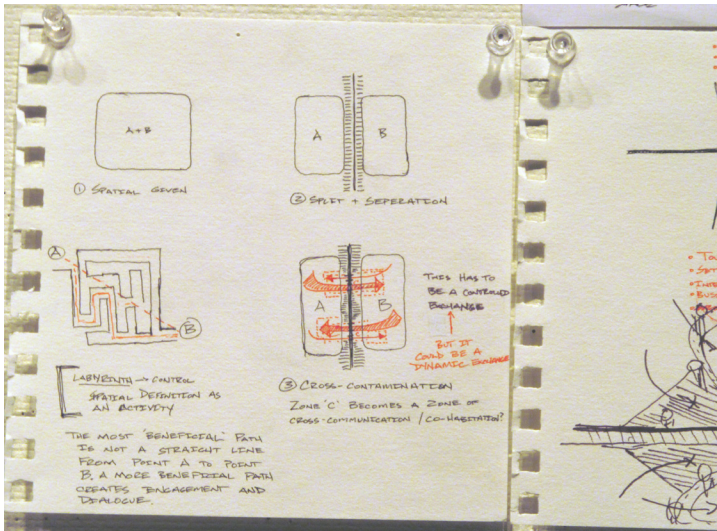 A+B
① SPATIAL GIVEN
A
B
② SPLIT + SEPERATION
A
B
LABYRINTH → CONTROL
SPATIAL DEFINITION AS
AN ACTIVITY
THE MOST 'BENEFICIAL' PATH
IS NOT A STRAIGHT LINE
FROM POINT A TO POINT
B. A MORE BENEFICIAL PATH
CREATES ENGAGEMENT AND
DIALOGUE.
A
B
THIS HAS TO
BE A CONTROLED
EXCHANGE
BUT IT
COULD BE A
DYNAMIC EXCHANGE
③ CROSS-CONTAMINATION
ZONE 'C' BECOMES A ZONE OF
CROSS-COMMUNICATION / CO-HABITATION?